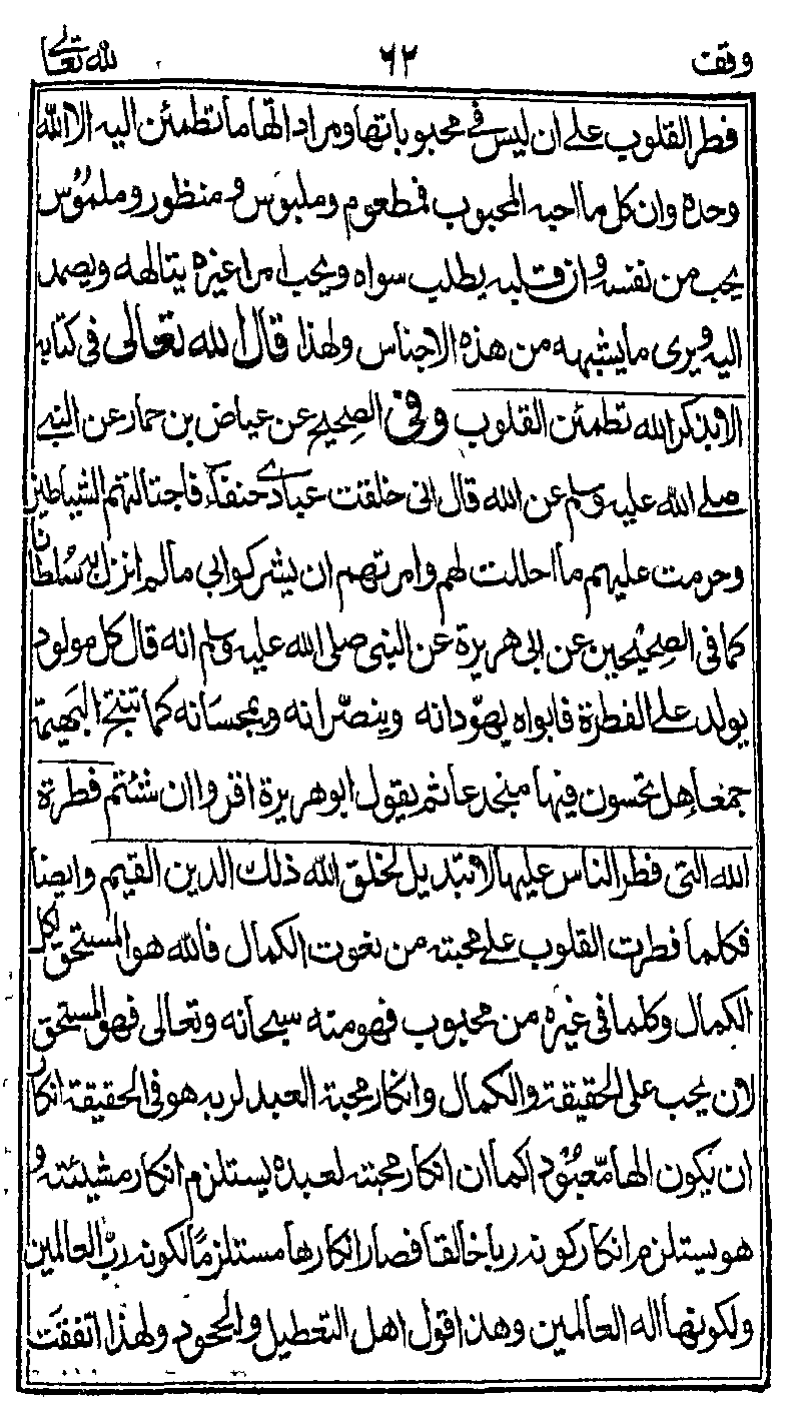 وقف ٦٢ لله تعالى
فطر القلوب على ان ليس في محبوباتها ومراداتها ما تطمئن اليه الا الله
وحده وان كل ما احبه المحبوب فمطعوم وملبوس ومنظور وملموس
يجب من نفسه وان قلبه يطلب سواه ويحب امرا غيره يتالهه ويصمد
اليه ويرى ما يشبهه من هذه الاجناس ولهذا قال الله تعالى في كتابه
الا بذكر الله تطمئن القلوب وفي الصحيح عن عياض بن حمار عن النبي
صلى الله عليه وسلم عن الله قال انى خلقت عبادي حنفاء فاجتالتهم الشياطين
وحرمت عليهم ما احللت لهم وامرتهم ان يشركوا بي ما لم انزل به سُلطانا
كما في الصحيحين عن ابى هريرة عن النبى صلى الله عليه وسلم انه قال كل مولود
يولد على الفطرة فابواه يهوّدانه وينصّرانه ويمجسَانه كما تنتج البهيمة
جمعا هل تحسون فيها من جدعا ثم يقول ابو هريرة اقروا ان شئتم فطرة
الله التى فطر الناس عليها لا تبديل لخلق الله ذلك الدين القيم وايضا
فكلما فطرت القلوب على محبته من نعوت الكمال فالله هو المستحق لكل
الكمال وكلما في غيره من محبوب فهو منه سبحانه وتعالى فهو المستحق
لان يحب على الحقيقة والكمال وانكار محبة العبد لربه هو في الحقيقة انكار
ان يكون الها معبُودا كما ان انكار محبته لعبده يستلزم انكار مشيئته و
هو يستلزم انكار كونه ربا خالقا فصار انكارها مستلزمًا لكونه ربّ العالمين
ولكونها اله العالمين وهذا قول اهل التعطيل والجحود ولهذا اتفقت